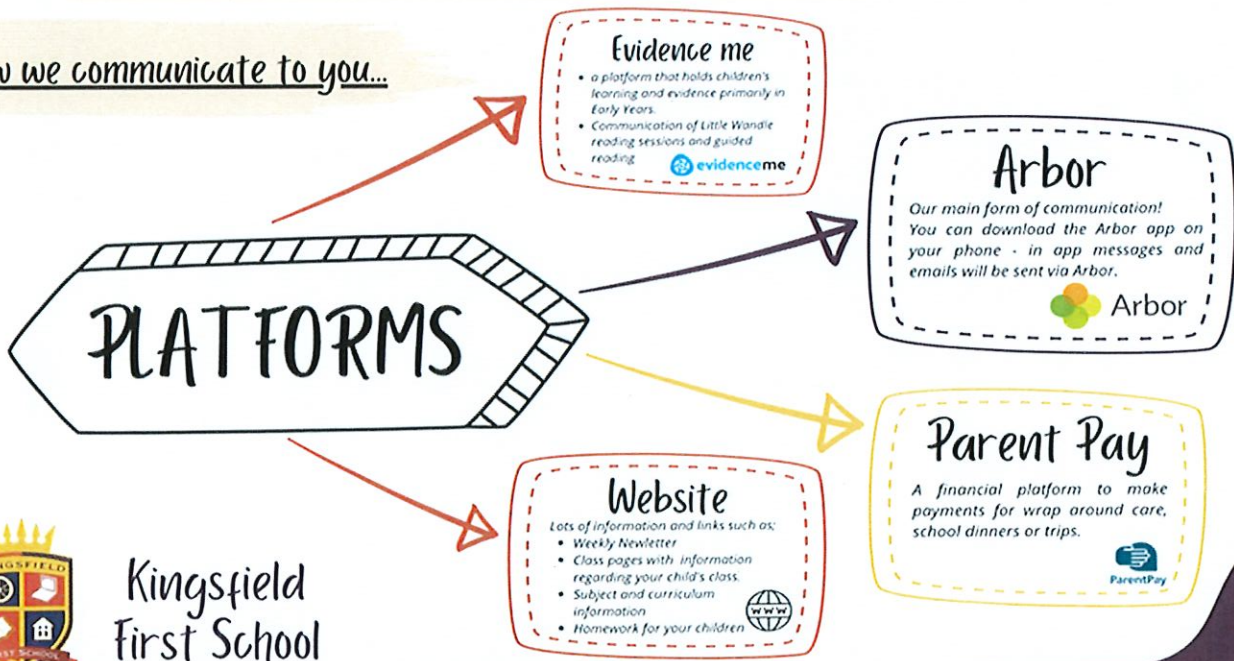 we communicate to you...
Evidence me
• a platform that holds children's
learning and evidence primarily in
Early Years.
• Communication of Little Wandle
reading sessions and guided
reading
evidenceme
Arbor
Our main form of communication!
You can download the Arbor app on
your phone - in app messages and
emails will be sent via Arbor.
Arbor
PLATFORMS
Parent Pay
A financial platform to make
payments for wrap around care,
school dinners or trips.
ParentPay
Website
Lots of information and links such as;
• Weekly Newletter
• Class pages with information
regarding your child's class.
• Subject and curriculum
information
• Homework for your children
WWW
Kingsfield
First School